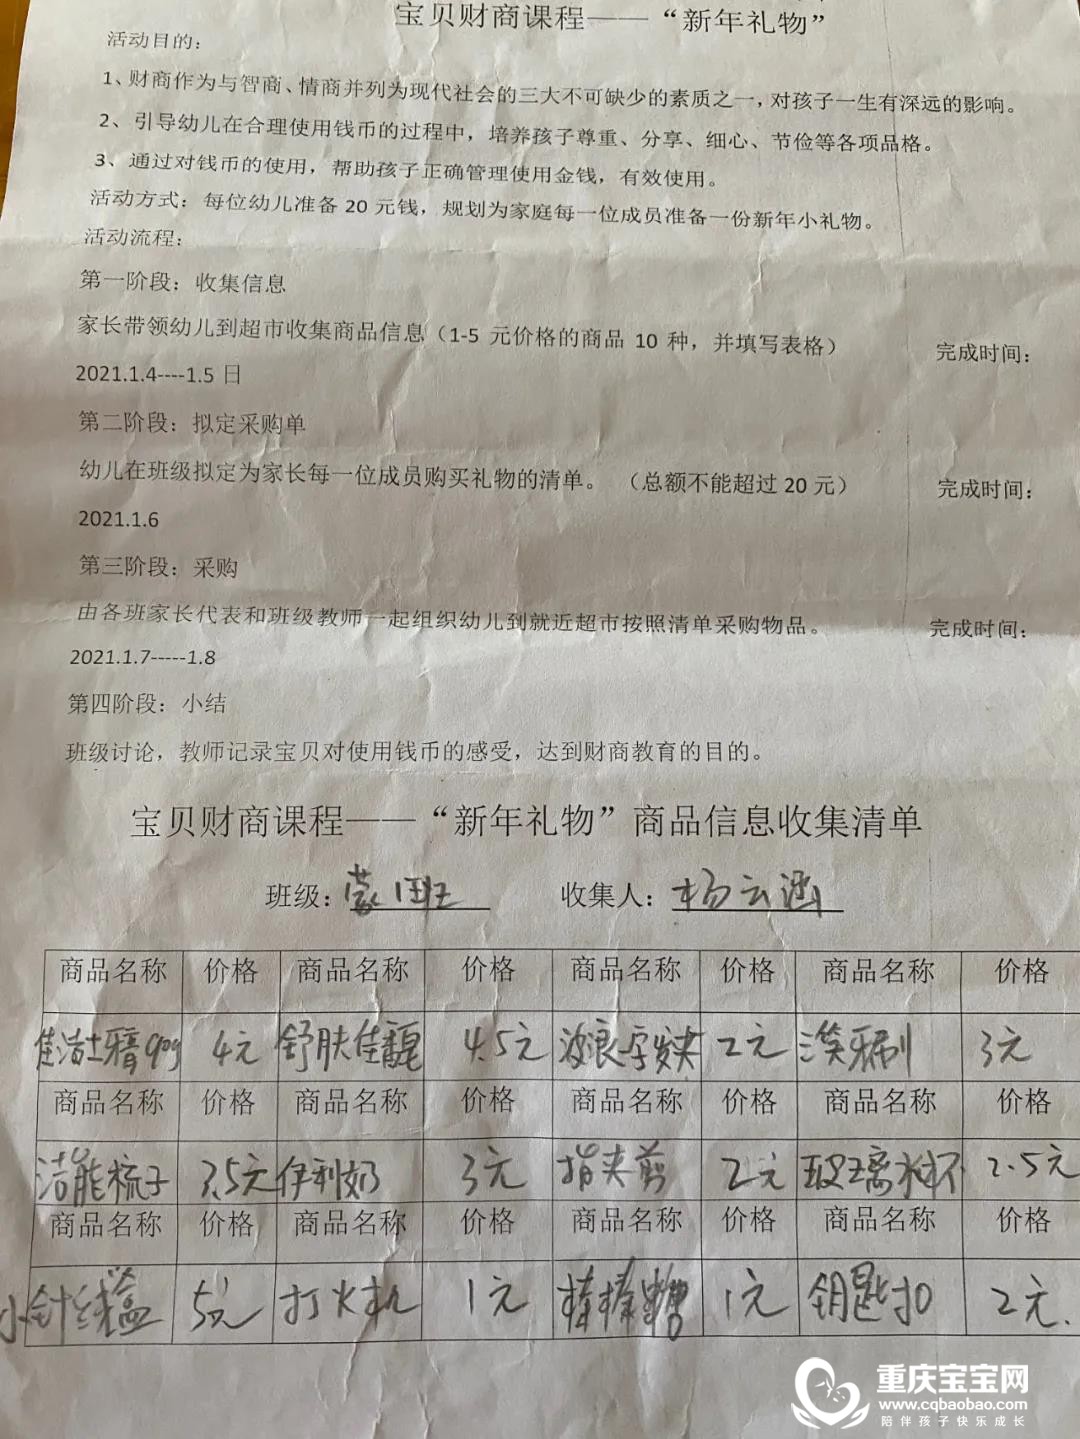 宝贝财商课程——“新年礼物”
活动目的：
1、财商作为与智商、情商并列为现代社会的三大不可缺少的素质之一，对孩子一生有深远的影响。
2、引导幼儿在合理使用钱币的过程中，培养孩子尊重、分享、细心、节俭等各项品格。
3、通过对钱币的使用，帮助孩子正确管理使用金钱，有效使用。
活动方式：每位幼儿准备20元钱，规划为家庭每一位成员准备一份新年小礼物。
活动流程：
第一阶段：收集信息
家长带领幼儿到超市收集商品信息（1-5 元价格的商品 10 种，并填写表格） 完成时间：
2021.1.4----1.5日
第二阶段：拟定采购单
幼儿在班级拟定为家长每一位成员购买礼物的清单。 （总额不能超过20元） 完成时间：
2021.1.6
第三阶段：采购
由各班家长代表和班级教师一起组织幼儿到就近超市按照清单采购物品。 完成时间：
2021.1.7-----1.8
第四阶段：小结
班级讨论，教师记录宝贝对使用钱币的感受，达到财商教育的目的。
宝贝财商课程——“新年礼物”商品信息收集清单
班级：蒙1班 收集人：杨云涵
商品名称 价格 商品名称 价格 商品名称 价格 商品名称 价格
佳洁士牙膏90g 4元 舒肤佳香皂 4.5元 波浪字发夹 2元 牙刷 3元
商品名称 价格 商品名称 价格 商品名称 价格 商品名称 价格
洁能梳子 3.5元 伊利奶 3元 指夹剪 2元 玻璃水杯 2.5元
商品名称 价格 商品名称 价格 商品名称 价格 商品名称 价格
小针线盒 5元 打火机 1元 棒棒糖 1元 钥匙扣 2元.
重庆宝宝网
www.cqbaobao.com
陪伴孩子快乐成长